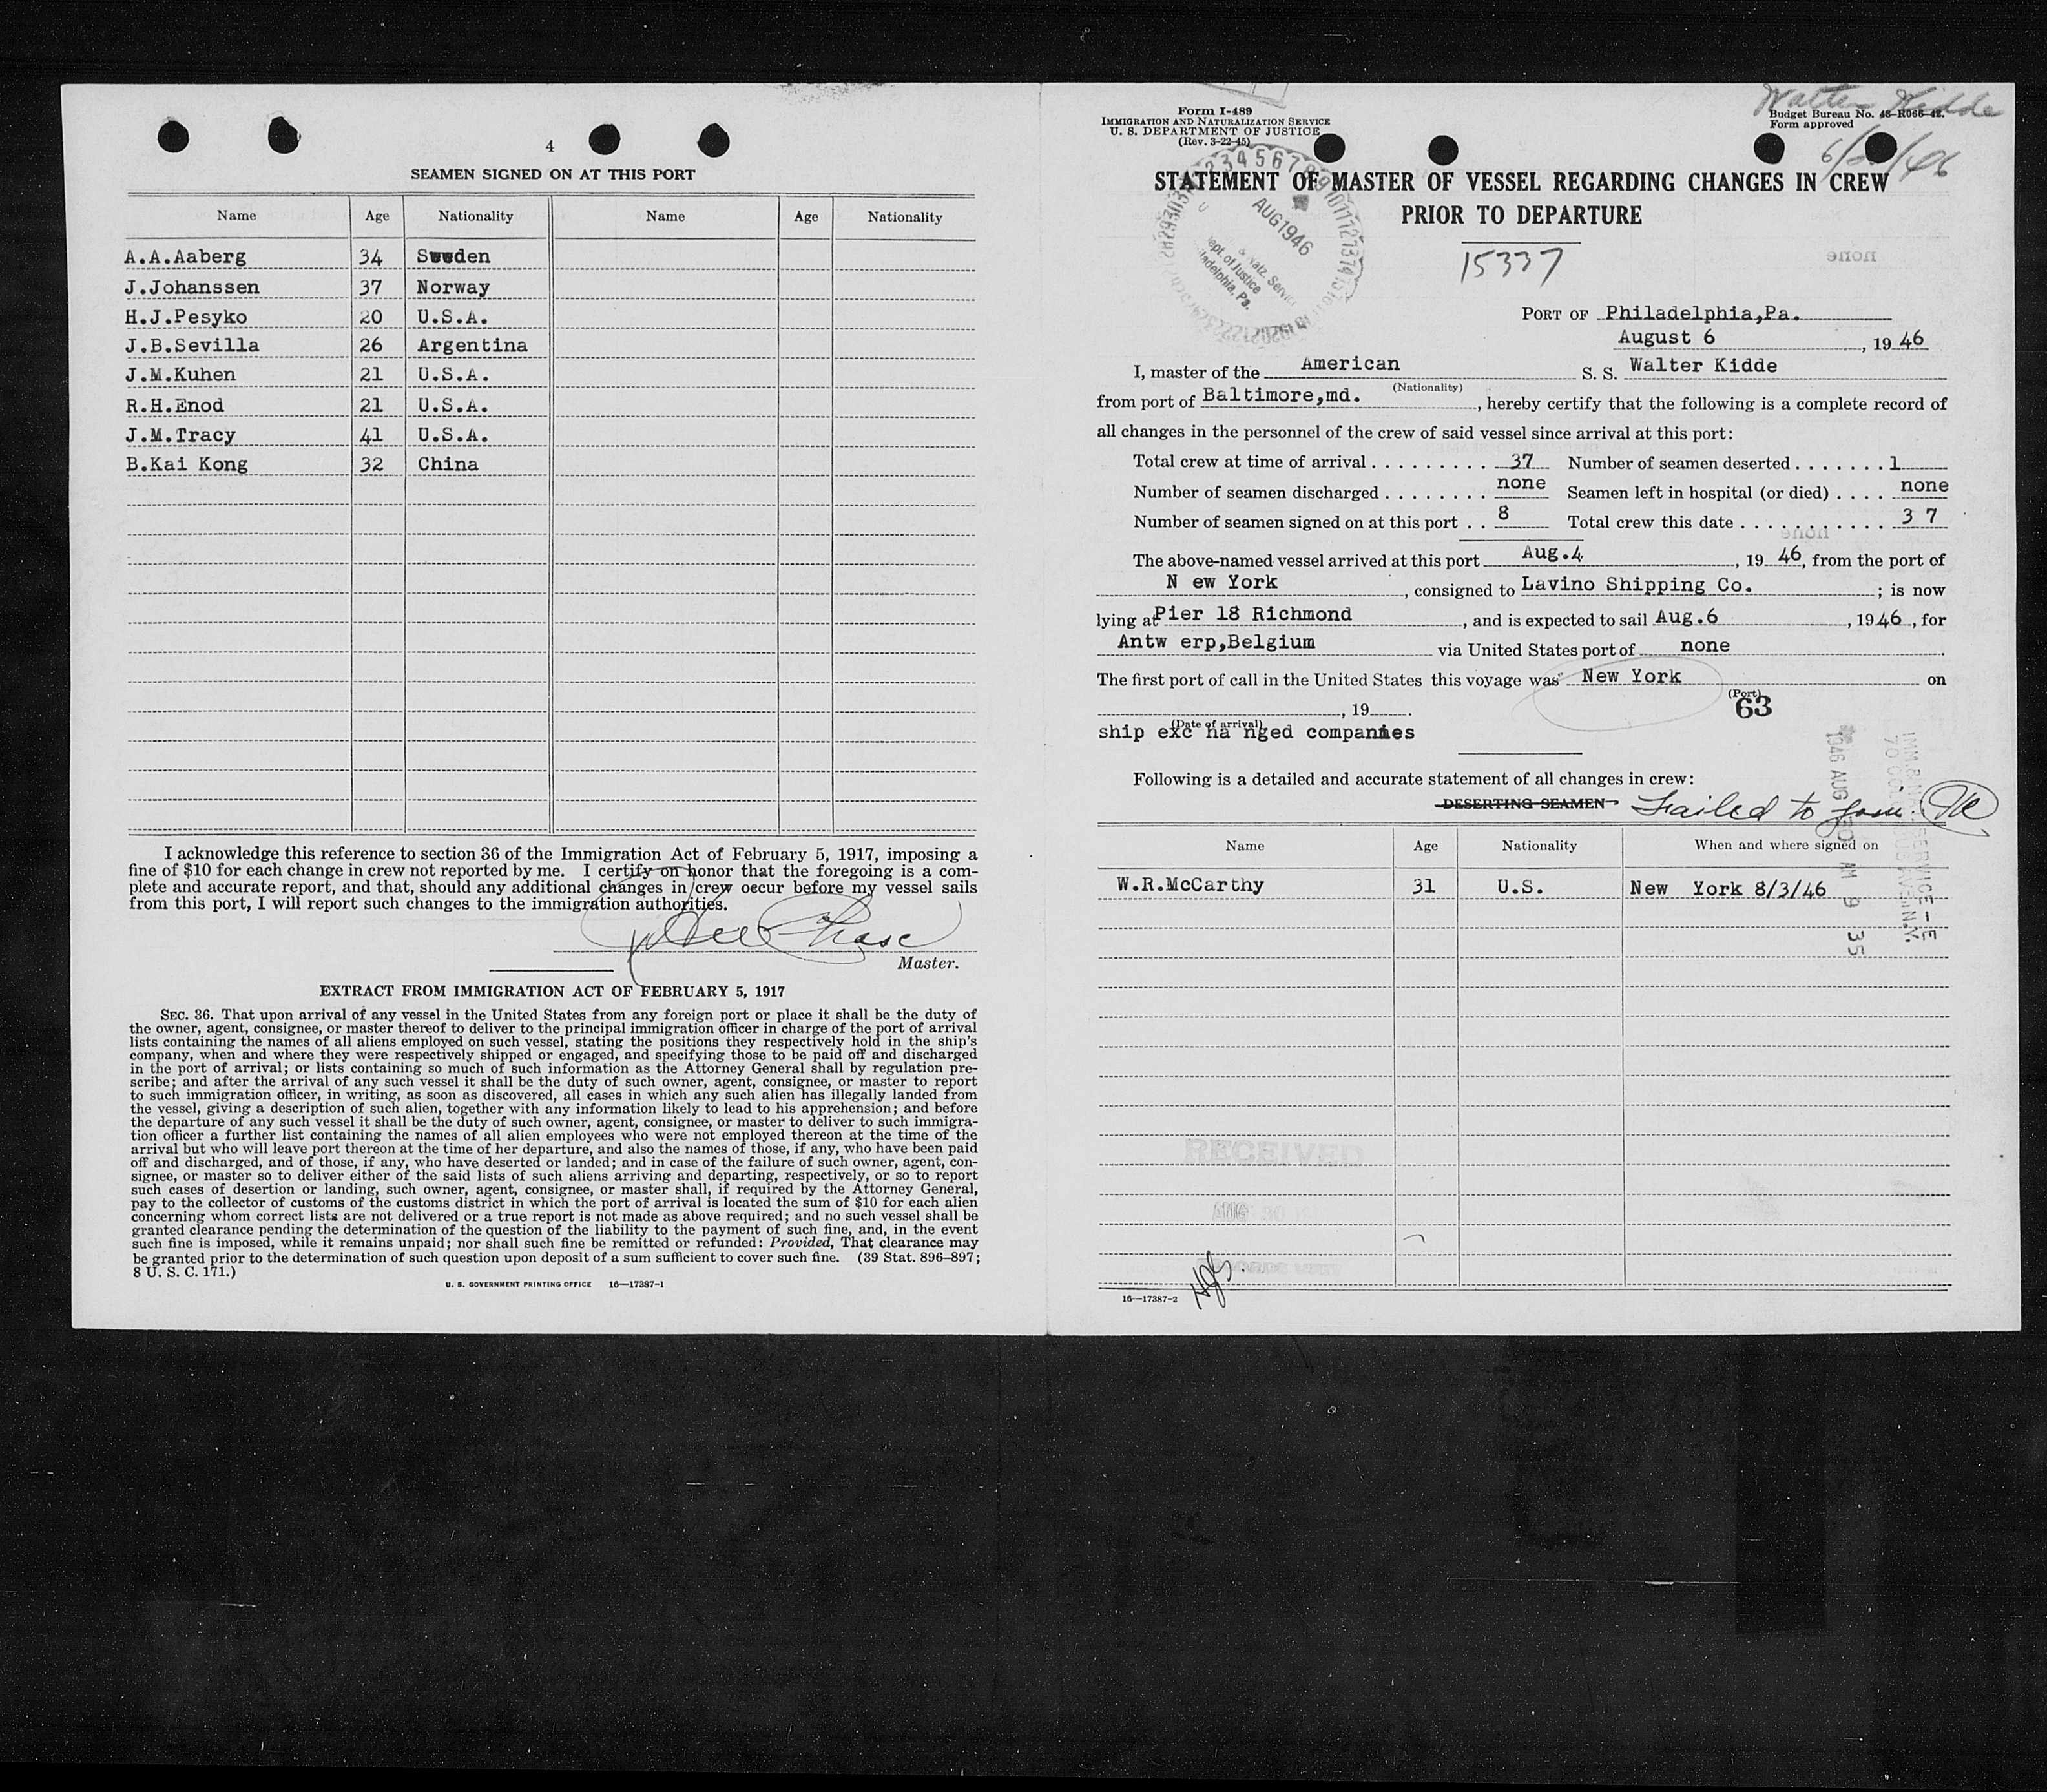 4
SEAMEN SIGNED ON AT THIS PORT
Name Age Nationality Name Age Nationality
A.A.Aaberg 34 Sweden
J.Johanssen 37 Norway
H.J.Pesyko 20 U.S.A.
J.B.Sevilla 26 Argentina
J.M.Kuhen 21 U.S.A.
R.H.Enod 21 U.S.A.
J.M.Tracy 41 U.S.A.
B.Kai Kong 32 China
I acknowledge this reference to section 36 of the Immigration Act of February 5, 1917, imposing a
fine of $10 for each change in crew not reported by me. I certify on honor that the foregoing is a com-
plete and accurate report, and that, should any additional changes in crew occur before my vessel sails
from this port, I will report such changes to the immigration authorities.
Chase
Master.
EXTRACT FROM IMMIGRATION ACT OF FEBRUARY 5, 1917
SEC. 36. That upon arrival of any vessel in the United States from any foreign port or place it shall be the duty of
the owner, agent, consignee, or master thereof to deliver to the principal immigration officer in charge of the port of arrival
lists containing the names of all aliens employed on such vessel, stating the positions they respectively hold in the ship's
company, when and where they were respectively shipped or engaged, and specifying those to be paid off and discharged
in the port of arrival; or lists containing so much of such information as the Attorney General shall by regulation pre-
scribe; and after the arrival of any such vessel it shall be the duty of such owner, agent, consignee, or master to report
to such immigration officer, in writing, as soon as discovered, all cases in which any such alien has illegally landed from
the vessel, giving a description of such alien, together with any information likely to lead to his apprehension; and before
the departure of any such vessel it shall be the duty of such owner, agent, consignee, or master to deliver to such immigra-
tion officer a further list containing the names of all alien employees who were not employed thereon at the time of the
arrival but who will leave port thereon at the time of her departure, and also the names of those, if any, who have been paid
off and discharged, and of those, if any, who have deserted or landed; and in case of the failure of such owner, agent, con-
signee, or master so to deliver either of the said lists of such aliens arriving and departing, respectively, or so to report
such cases of desertion or landing, such owner, agent, consignee, or master shall, if required by the Attorney General,
pay to the collector of customs of the customs district in which the port of arrival is located the sum of $10 for each alien
concerning whom correct lists are not delivered or a true report is not made as above required; and no such vessel shall be
granted clearance pending the determination of the question of the liability to the payment of such fine, and, in the event
such fine is imposed, while it remains unpaid; nor shall such fine be remitted or refunded: Provided, That clearance may
be granted prior to the determination of such question upon deposit of a sum sufficient to cover such fine. (39 Stat. 896–897;
8 U. S. C. 171.)
U. S. GOVERNMENT PRINTING OFFICE 16—17387-1
Form I-489
IMMIGRATION AND NATURALIZATION SERVICE
U. S. DEPARTMENT OF JUSTICE
(Rev. 3-22-45)
Walter Kidde
Budget Bureau No. 43-R066-42.
Form approved
STATEMENT OF MASTER OF VESSEL REGARDING CHANGES IN CREW
PRIOR TO DEPARTURE
AUG 1946
15337
none
PORT OF Philadelphia,Pa.
August 6, 1946
I, master of the American S. S. Walter Kidde
(Nationality)
from port of Baltimore,md., hereby certify that the following is a complete record of
all changes in the personnel of the crew of said vessel since arrival at this port:
Total crew at time of arrival . . . . . . . . . 37 Number of seamen deserted . . . . . . . 1
Number of seamen discharged . . . . . . . . none Seamen left in hospital (or died) . . . . none
Number of seamen signed on at this port . . 8 Total crew this date . . . . . . . . . . . . 3 7
none
The above-named vessel arrived at this port Aug.4, 19 46, from the port of
N ew York, consigned to Lavino Shipping Co.; is now
lying at Pier 18 Richmond, and is expected to sail Aug.6, 1946, for
Antw erp,Belgium via United States port of none
The first port of call in the United States this voyage was New York on
(Port)
63
, 19 .
(Date of arrival)
ship exc ha nged companies
Following is a detailed and accurate statement of all changes in crew:
DESERTING SEAMEN Failed to join
Name Age Nationality When and where signed on
W.R.McCarthy 31 U.S. New York 8/3/46
1946 AUG 30 AM 9 35
RECEIVED
AUG 30
16—17387-2